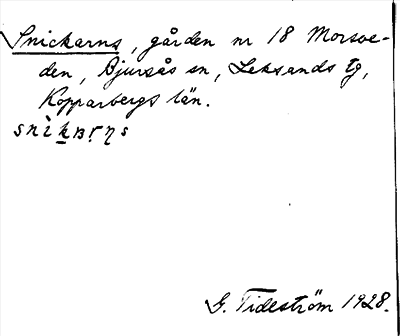 Snickarns, gården nr 18 Morsve-
den, Bjursås sn, Leksands tg,
Kopparbergs län.
G. Tideström 1928.